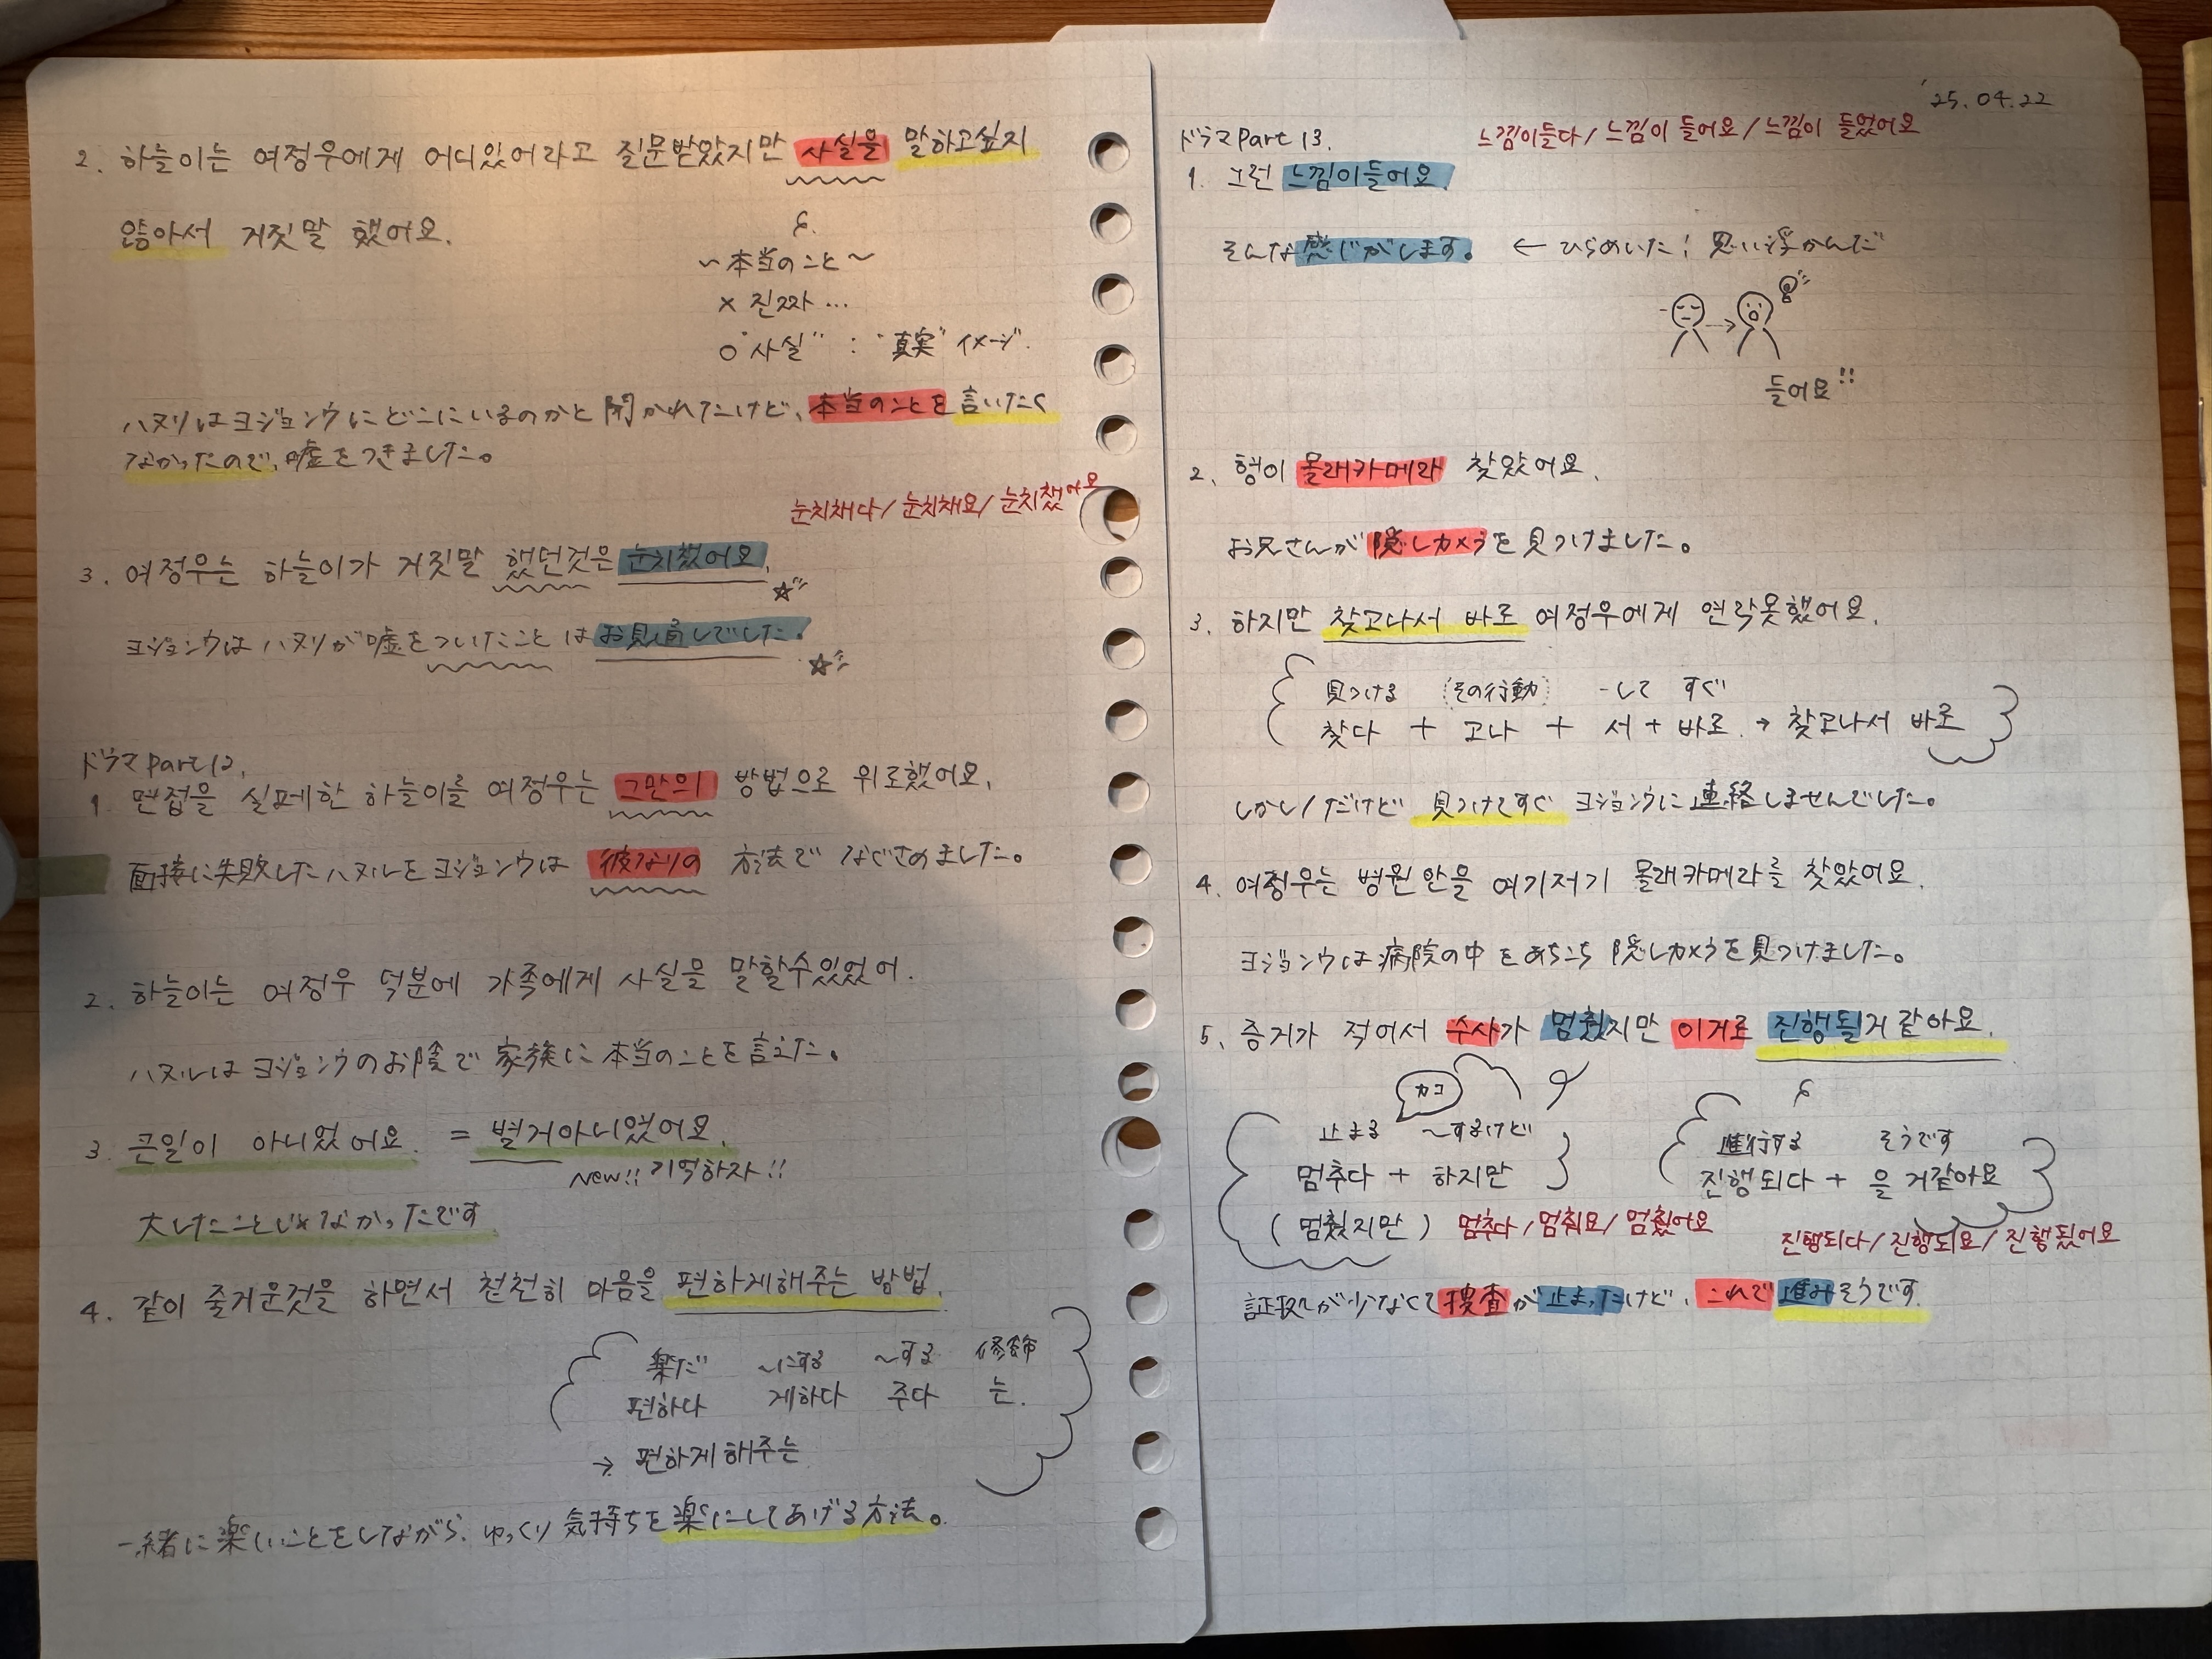 2. 하늘이는 여정우에게 어디있어라고 질문받았지만 사실을 말하고싶지
않아서 거짓말 했어요.
~本当のこと~
× 진짜…
○"사실" : "真実"イメージ.
ハヌリはヨジョンウにどこにいるのかと聞かれたけど、本当のことを言いたく
なかったので、嘘をつきました。
눈치채다/눈치채요/눈치챘어요
3. 여정우는 하늘이가 거짓말 했던것은 눈치챘어요.
ヨジョンウはハヌリが嘘をついたことはお見通しでした。
ドラマpart12.
1. 면접을 실패한 하늘이를 여정우는 그만의 방법으로 위로했어요.
面接に失敗したハヌルをヨジョンウは彼なりの方法でなぐさめました。
2. 하늘이는 여정우 덕분에 가족에게 사실을 말할수있었어.
ハヌルはヨジョンウのお陰で家族に本当のことを言えた。
3. 큰일이 아니었어요. = 별거아니었어요.
New!! 기억하자!!
大したことじゃなかったです
4. 같이 즐거운것을 하면서 천천히 마음을 편하게해주는 방법.
楽だ ~にする ~する 修飾
편하다 게하다 주다 는.
→ 편하게해주는
一緒に楽しいことをしながら、ゆっくり気持ちを楽にしてあげる方法。
'25.04.22
ドラマpart 13.
느낌이들다/느낌이 들어요/느낌이 들었어요
1. 그런 느낌이들어요.
そんな感じがします。 ← ひらめいた! 思い浮かんだ
들어요!!
2. 형이 몰래카메라 찾았어요.
お兄さんが隠しカメラを見つけました。
3. 하지만 찾고나서 바로 여정우에게 연락못했어요.
見つける (その行動) -して すぐ
찾다 + 고나 + 서 + 바로 → 찾고나서 바로
しかし/だけど 見つけてすぐ ヨジョンウに連絡しませんでした。
4. 여정우는 병원안을 여기저기 몰래카메라를 찾았어요.
ヨジョンウは病院の中をあちこち隠しカメラを見つけました。
5. 증거가 적어서 수사가 멈췄지만 이거로 진행될거같아요.
カコ
止まる ~するけど
멈추다 + 하지만
(멈췄지만) 멈추다/멈춰요/멈췄어요
進行する そうです
진행되다 + 을 거같아요
진행되다/진행되요/진행됬어요
証拠が少なくて捜査が止まったけど、これで進みそうです.